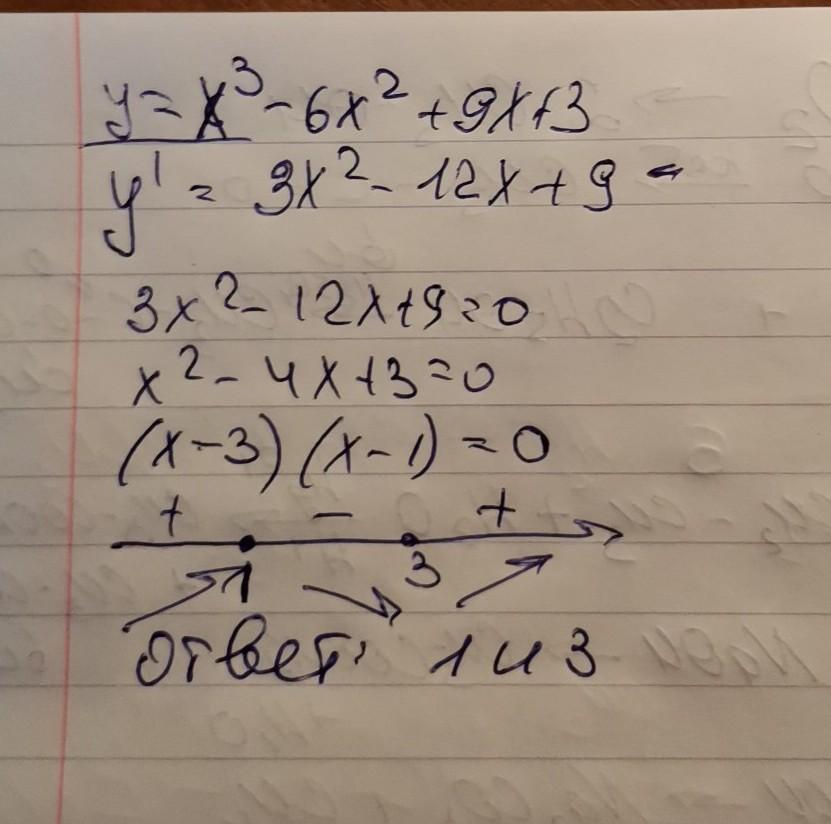 y = x³ - 6x² + 9x + 3
y' = 3x² - 12x + 9 -
3x² - 12x + 9 = 0
x² - 4x + 3 = 0
(x - 3) (x - 1) = 0
+ - +
1 3
Ответ: 1 и 3